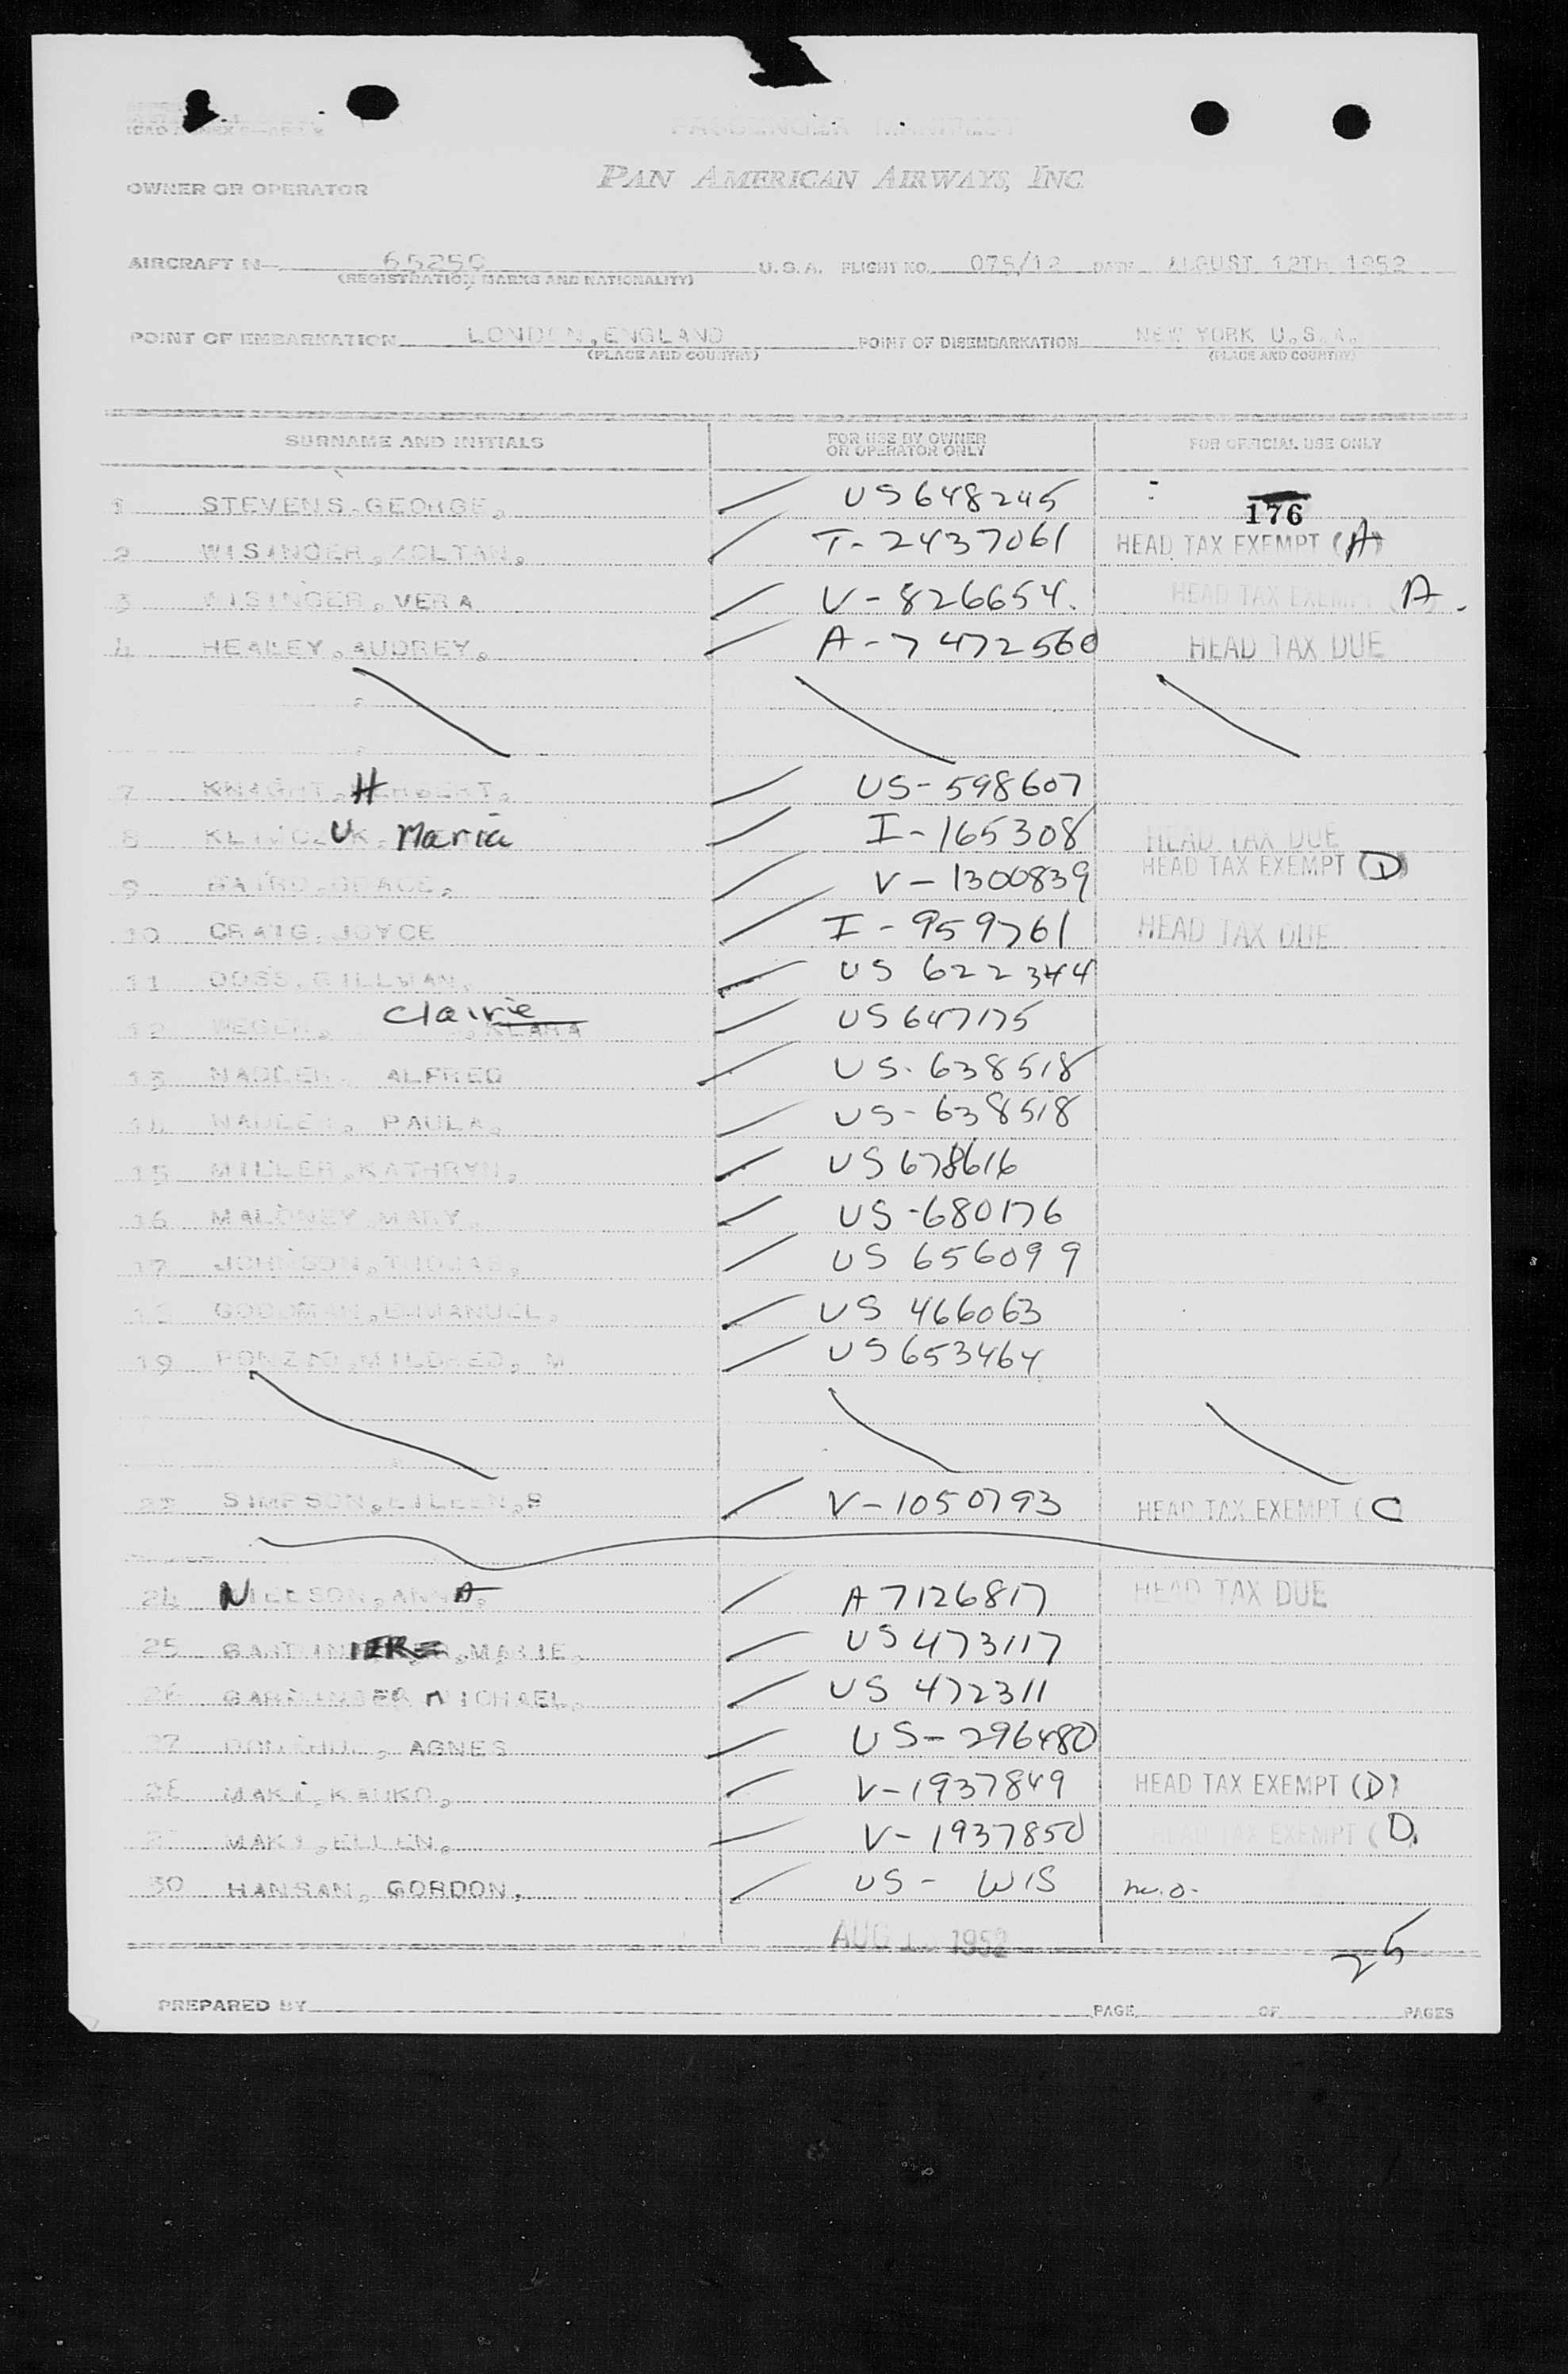 PASSENGER MANIFEST
OWNER OR OPERATOR PAN AMERICAN AIRWAYS, INC.
AIRCRAFT N— 65259 U.S.A. FLIGHT NO. 075/12 DATE AUGUST 12TH 1952
(REGISTRATION MARKS AND NATIONALITY)
POINT OF EMBARKATION LONDON, ENGLAND POINT OF DISEMBARKATION NEW YORK U.S.A.
(PLACE AND COUNTRY) (PLACE AND COUNTRY)
SURNAME AND INITIALS FOR USE BY OWNER OR OPERATOR ONLY FOR OFFICIAL USE ONLY
1 STEVENS, GEORGE, US648245 176
2 WISINGER, ZOLTAN, T-2437061 HEAD TAX EXEMPT (A)
3 WISINGER, VERA V-826654. HEAD TAX EXEMPT (A).
4 HEALEY, AUDREY, A-7472560 HEAD TAX DUE
7 KNIGHT, HERBERT, US-598607
8 Maria I-165308 HEAD TAX DUE
9 BAIRD, GRACE, V-1300839 HEAD TAX EXEMPT (D)
10 CRAIG, JOYCE I-959761 HEAD TAX DUE
11 GILLMAN, US 622344
12 Clairie KLARA US647175
13 NADLER, ALFRED US-638518
14 NADLER, PAULA, US-638518
15 MILLER, KATHRYN, US678616
16 MALONEY, MARY, US-680176
17 JOHNSON, THOMAS, US 656099
18 GOODMAN, EMMANUEL, US 466063
19 MILDRED, M US653464
22 SIMPSON, EILEEN, P V-1050793 HEAD TAX EXEMPT (C)
24 ANNA, A7126817 HEAD TAX DUE
25 MARIE, US473117
26 MICHAEL, US 472311
27 DONAHUE, AGNES US-296480
28 MAKI, KAUKO, V-1937849 HEAD TAX EXEMPT (D)
29 MAKI, ELLEN, V-1937850 HEAD TAX EXEMPT (D)
30 HANSAN, GORDON, US- WIS
AUG 1952
25
PREPARED BY PAGE OF PAGES